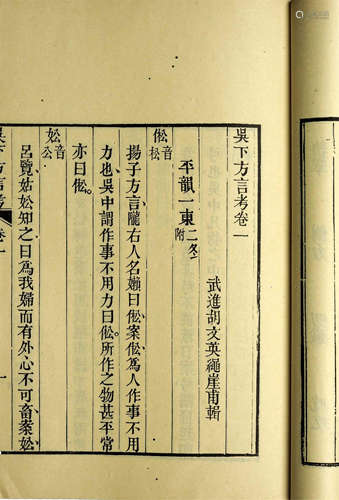 吳下方言考卷一
武進胡文英繩崖甫輯
平韻一東二冬附
倯音松
揚子方言隴右人名嬾曰倯案倯為人作事不用
力也吳中謂作事不用力曰倯所作之物甚平常
亦曰倯
妐音公
呂覽姑妐知之曰為我婦而有外心不可畜案妐
吳下方言考 卷一 一